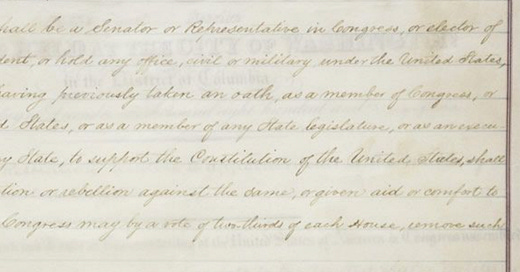 hall be a Senator or Representative in Congress, or elector of
dent, or hold any office, civil or military under the United States,
having previously taken an oath, as a member of Congress, or
d States, or as a member of any State legislature, or as an execu-
y State, to support the Constitution of the United States, shall
tion or rebellion against the same, or given aid or comfort to
Congress may by a vote of two-thirds of each House, remove such